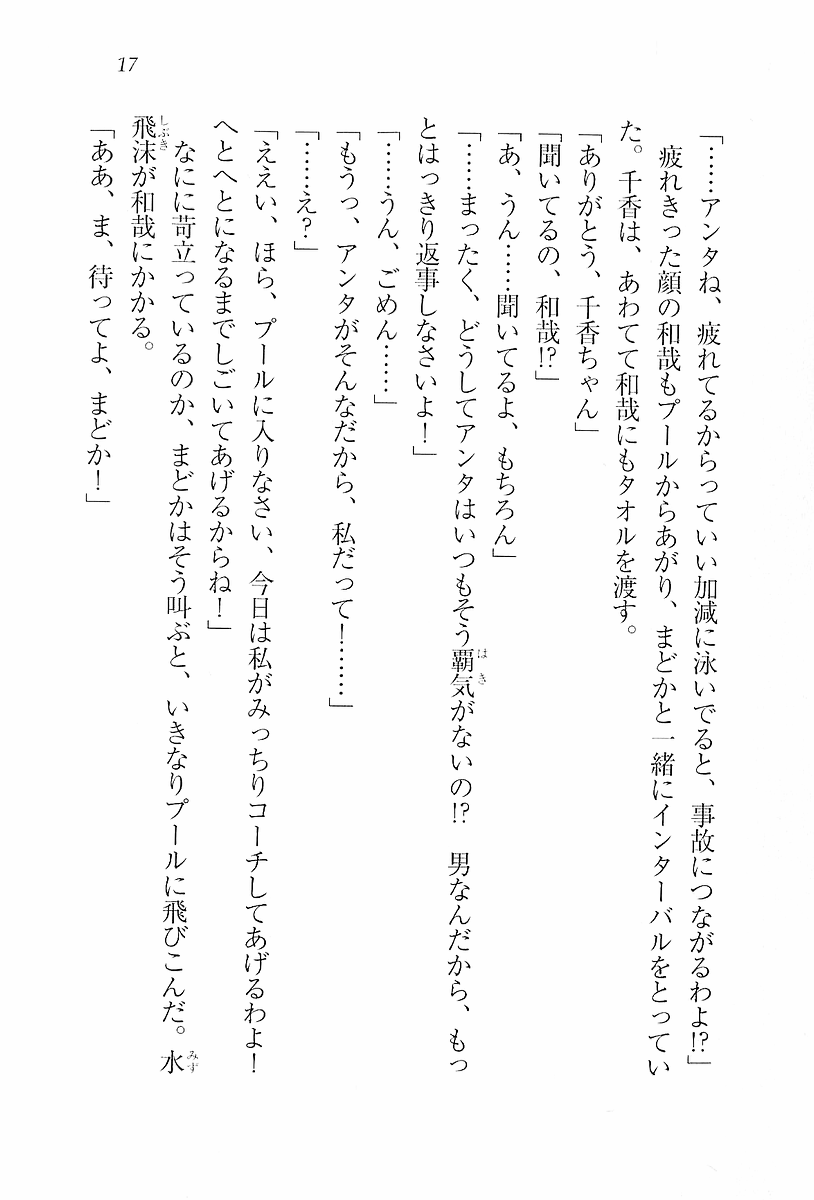 17
「……アンタね、疲れてるからっていい加減に泳いでると、事故につながるわよ!?」
疲れきった顔の和哉もプールからあがり、まどかと一緒にインターバルをとってい
た。千香は、あわてて和哉にもタオルを渡す。
「ありがとう、千香ちゃん」
「聞いてるの、和哉!?」
「あ、うん……聞いてるよ、もちろん」
「……まったく、どうしてアンタはいつもそう覇気がないの!?　男なんだから、もっ
とはっきり返事しなさいよ！」
「……うん、ごめん……」
「もうっ、アンタがそんなだから、私だって！……」
「……え？」
「ええい、ほら、プールに入りなさい、今日は私がみっちりコーチしてあげるわよ！
へとへとになるまでしごいてあげるからね！」
なにに苛立っているのか、まどかはそう叫ぶと、いきなりプールに飛びこんだ。水
飛沫が和哉にかかる。
「ああ、ま、待ってよ、まどか！」